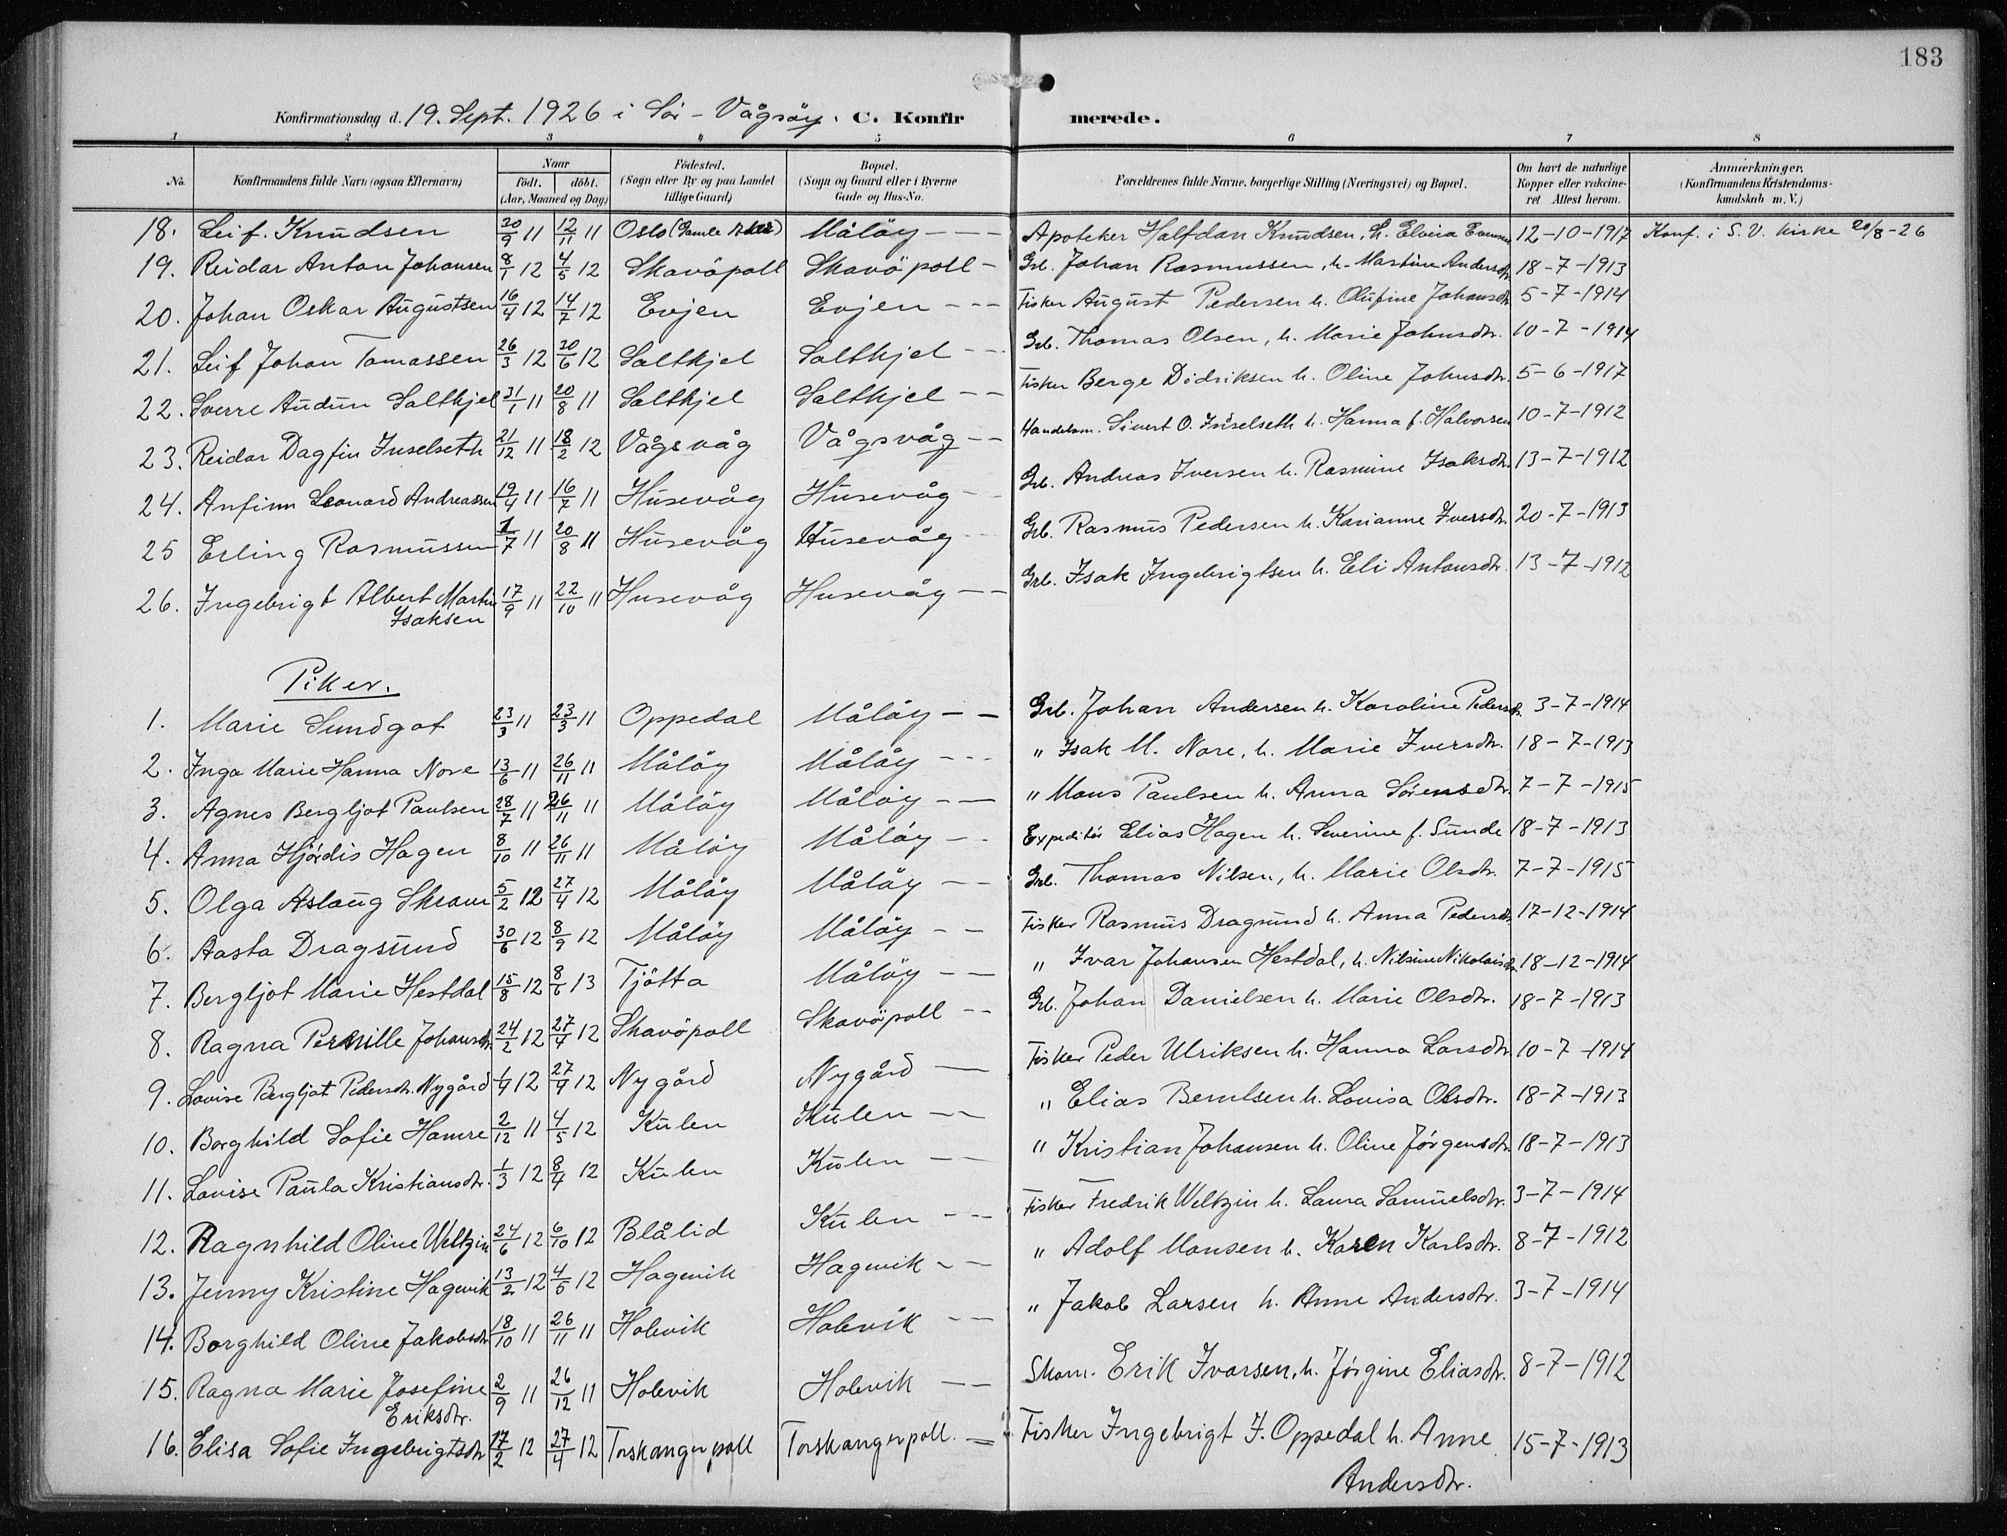 183
Konfirmationsdag d. 19. Sept. 1926 i Sör-Vågsöy. C. Konfirmerede.
1 2 3 4 5 6 7 8
No. Konfirmandens fulde Navn (ogsaa Efternavn) Naar født. døbt. (Aar, Maaned og Dag) Fødested. (Sogn eller By og paa Landet tillige Gaard) Bopæl. (Sogn og Gaard eller i Byerne Gade og Hus-No. Forældrenes fulde Navne, borgerlige Stilling (Næringsvei) og Bopæl. Om havt de naturlige Kopper eller vakcineret Attest herom. Anmærkninger. (Konfirmandens Kristendomskundskab m. V.)
18. Leif Knudsen 30/9 11 12/11 11 Oslo (Gamle Aker) Målöy — Apoteker Halfdan Knudsen, h. Elvira 12-10-1917 Konf. i S. V. kirke 20/8-26
19. Reidar Anton Johansen 8/1 12 4/5 12 Skavöpoll Skavöpoll — Grb. Johan Rasmussen, h. Martine Andersdtr. 18-7-1913
20. Johan Oskar Augustsen 16/4 12 14/7 12 Evjen Evjen — Fisker August Pedersen h. Olufine Johansdtr. 5-7-1914
21. Leif Johan Tomassen 26/3 12 30/6 12 Saltkjel Saltkjel — Grb. Thomas Olsen, h. Marie Johnsdtr. 10-7-1914
22. Sverre Audun Saltkjel 31/1 11 20/8 11 Saltkjel Saltkjel — Fisker Berge Didriksen h. Oline Johnsdtr. 5-6-1917
23. Reidar Dagfin Inselseth 21/12 11 18/2 12 Vågsvåg Vågsvåg — Handelsm. Sivert O. Inselseth h. Hanna f. Halvorsen 10-7-1912
24. Anfinn Leonard Andreassen 19/4 11 16/7 11 Husevåg Husevåg — Grb. Andreas Iversen h. Rasmine Isaksdtr. 13-7-1912
25 Erling Rasmussen 1/7 11 20/8 11 Husevåg Husevåg — Grb. Rasmus Pedersen h. Karianne Iversdtr. 20-7-1913
26. Ingebrigt Albert Martin Isaksen 17/9 11 22/10 11 Husevåg Husevåg — Grb. Isak Ingebrigtsen h. Eli Antonsdtr. 13-7-1912
Piker.
1. Marie Sundgot 23/3 11 23/3 11 Oppedal Målöy — Grb. Johan Andersen h. Karoline Pedersdtr. 3-7-1914
2. Inga Marie Hanna Nore 13/6 11 26/11 11 Målöy Målöy — " Isak M. Nore, h. Marie Iversdtr. 18-7-1913
3. Agnes Bergljot Paulsen 28/7 11 26/11 11 Målöy Målöy — " Mons Paulsen h. Anna Sörensdtr. 7-7-1915
4. Anna Hjördis Hagen 8/10 11 26/11 11 Målöy Målöy — Expeditör Elias Hagen h. Severine f. Sunde 18-7-1913
5. Olga Aslaug Skram 5/2 12 27/4 12 Målöy Målöy — Grb. Thomas Nilsen, h. Marie Olsdtr. 7-7-1915
6. Aasta Dragsund 30/6 12 8/9 12 Målöy Målöy — Fisker Rasmus Dragsund h. Anna Pedersdtr. 17-12-1914
7. Bergljot Marie Hestdal 15/8 12 8/6 13 Tjötta Målöy — " Ivar Johansen Hestdal, h. Nilsine Nikolaisdtr. 18-12-1914
8. Ragna Pernille Johansdtr. 24/2 12 27/4 12 Skavöpoll Skavöpoll — Grb. Johan Danielsen h. Marie Olsdtr. 18-7-1913
9. Lovise Bergljot Pedersdtr. Nygård 1/4 12 27/4 12 Nygård Nygård — Fisker Peder Ulriksen h. Hanna Larsdtr. 10-7-1914
10. Borghild Sofie Hamre 2/12 11 4/5 12 Kulen Kulen — " Elias Berntsen h. Lovisa Olsdtr. 18-7-1913
11. Lovise Paula Kristiansdtr. 1/3 12 8/4 12 Kulen Kulen — " Kristian Johansen h. Oline Jörgensdtr. 18-7-1913
12. Ragnhild Oline Weltzin 24/6 12 6/10 12 Blålid Kulen — Fisker Fredrik Weltzin h. Laura Samuelsdtr. 3-7-1914
13. Jenny Kristine Hagevik 13/2 12 4/5 12 Hagevik Hagevik — " Adolf Monsen h. Karen Karlsdtr. 8-7-1912
14. Borghild Oline Jakobsdtr 18/10 11 26/11 11 Holevik Holevik — " Jakob Larsen h. Anne Andersdtr. 3-7-1914
15. Ragna Marie Josefine Eriksdtr. 2/9 11 26/12 11 Holevik Holevik — Skom. Erik Ivarsen, h. Jörgine Eliasdtr. 8-7-1912
16. Elisa Sofie Ingebrigtsdtr 17/2 12 27/4 12 Torskangerpoll Torskangerpoll. — Fisker Ingebrigt J. Oppedal h. Anne Andersdtr. 15-7-1913